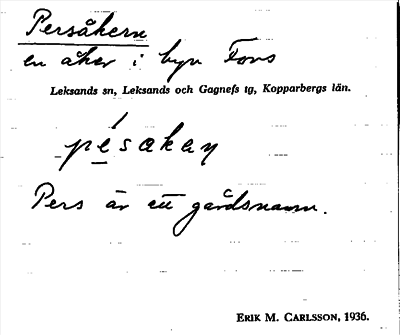 Persåkern
en åker i byn Fors
Leksands sn, Leksands och Gagnefs tg, Kopparbergs län.
pésakaṇ
Pers är ett gårdsnamn.
ERIK M. CARLSSON, 1936.